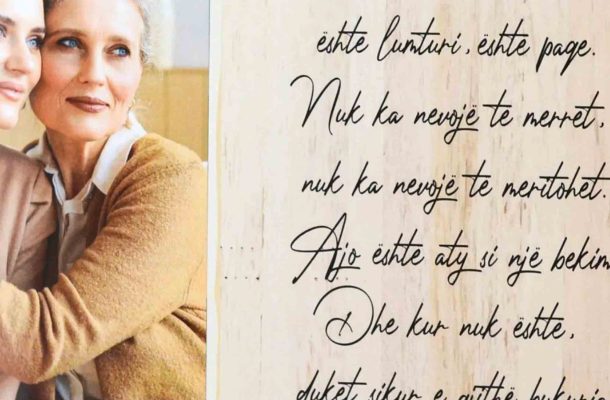 është lumturi, është paqe.
Nuk ka nevojë të merret,
nuk ka nevojë të meritohet.
Ajo është aty si një bekim
Dhe kur nuk është,
duket sikur e gjithë bukuria